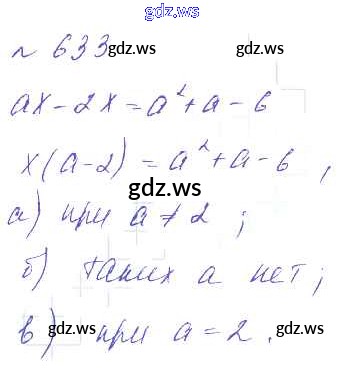 gdz.ws
№ 633
gdz.ws gdz.ws
ax - 2x = a² + a - 6
x(a-2) = a² + a - 6,
gdz.ws
а) при a ≠ 2;
б) таких a нет;
в) при a = 2.
gdz.ws gdz.ws